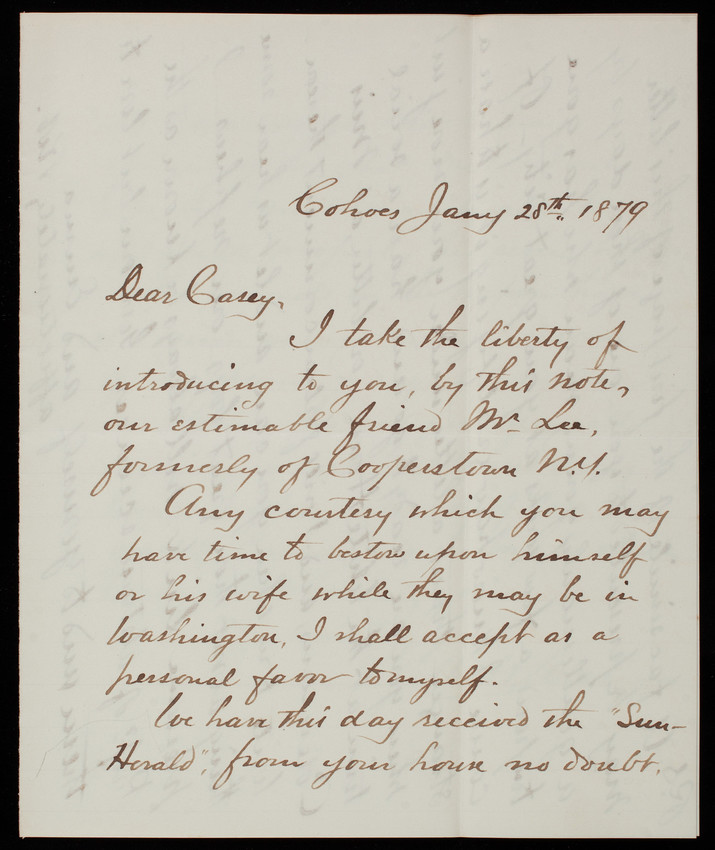 Cohoes Jany 28th. 1879
Dear Casey,
I take the liberty of
introducing to you, by this note,
our estimable friend Mr Lee,
formerly of Cooperstown N.Y.
Any courtesy which you may
have time to bestow upon himself
or his wife while they may be in
Washington, I shall accept as a
personal favor to myself.
We have this day received the "Sun-
Herald", from your house no doubt.